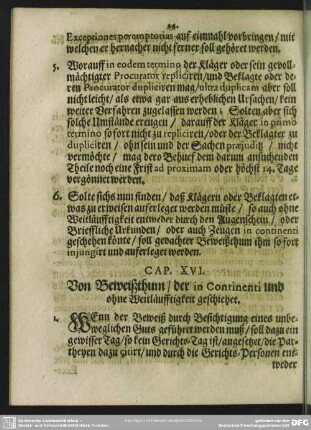 24.
Exceptiones peremptorias auf einmahl vorbringen / mit
welchen er hernacher nicht ferner soll gehöret werden.
5. Worauff in eodem termino der Kläger oder sein gevoll-
mächtigter Procurator repliciren / und Beklagte oder de-
ren Procurator dupliciren mag / ultra duplicam aber soll
nicht leicht / als etwa gar aus erheblichen Ursachen / kein
weiter Verfahren zugelassen werden: Solten aber sich
solche Umstände ereugen / darauff der Kläger in primo
termino so fort nicht zu repliciren / oder der Beklagter zu
dupliciren / ohn sein und der Sachen præjuditz / nicht
vermöchte / mag dero Behuef dem darum ansuchenden
Theile noch eine Frist ad proximam oder höchst 14. Tage
vergönnet werden.
6. Solte sichs nun finden / daß Klägern oder Beklagten et-
was zu erweisen aufferleget werden müste / so auch ohne
Weitläufftigkeit entweder durch den Augenschein / oder
Brieffliche Urkunden / oder auch Zeugen in continenti
geschehen könte / soll gedachter Beweißthum ihm so fort
injungirt und aufferleget werden.
CAP. XVI.
Von Beweißthum / der in Continenti und
ohne Weitläufftigkeit geschiehet.
1. WEnn der Beweiß durch Besichtigung eines unbe-
weglichen Guts geführet werden muß / soll dazu ein
gewisser Tag / so kein Gerichts-Tag ist / angesetzet / die Par-
theyen dazu citirt / und durch die Gerichts-Personen ent-
weder